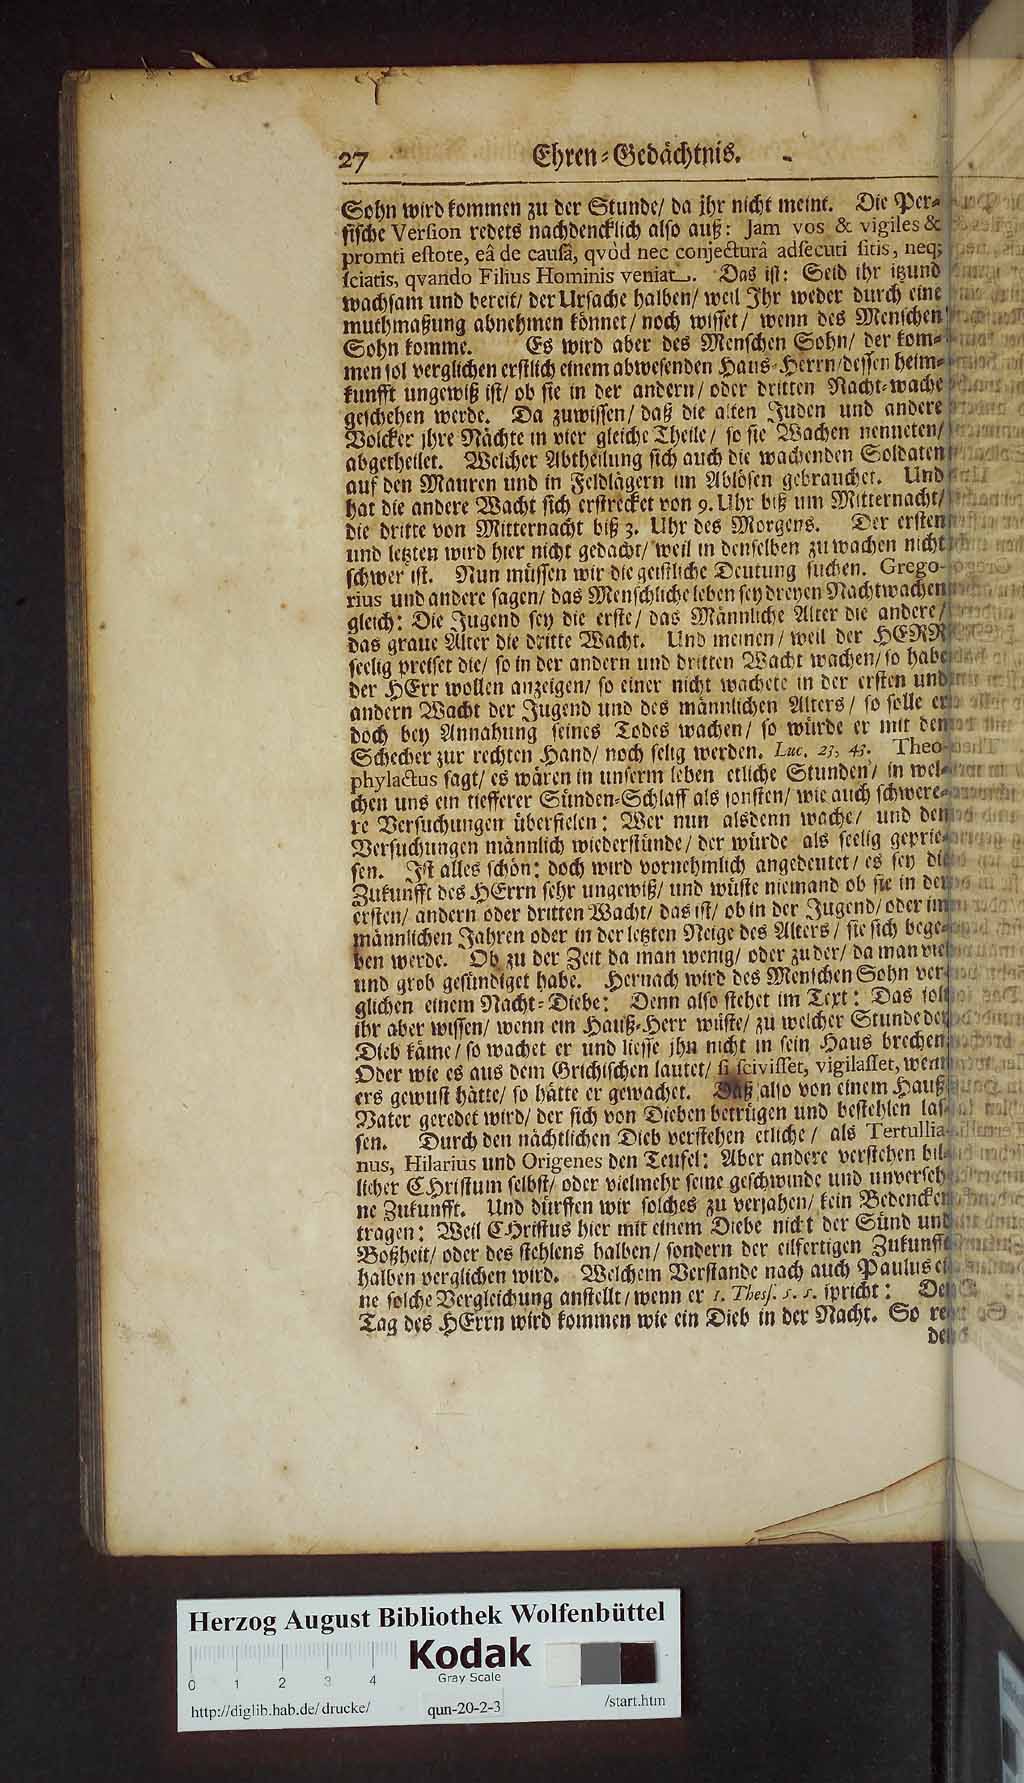 27 Ehren-Gedächtnis.
Sohn wird kommen zu der Stunde/ da jhr nicht meint. Die Per-
sische Version redets nachdencklich also auß: Jam vos & vigiles &
promti estote, eâ de causâ, qvòd nec conjecturâ adsecuti sitis, neq;
sciatis, qvando Filius Hominis veniat. Das ist: Seid ihr itzund
wachsam und bereit/ der Ursache halben/ weil Ihr weder durch eine
muthmaßung abnehmen könnet/ noch wisset/ wenn des Menschen
Sohn komme. Es wird aber des Menschen Sohn/ der kom-
men sol verglichen erstlich einem abwesenden Haus-Herrn/dessen heim-
kunfft ungewiß ist/ ob sie in der andern/ oder dritten Nacht-wache
geschehen werde. Da zuwissen/ daß die alten Juden und andere
Völcker jhre Nächte in vier gleiche Theile/ so sie Wachen nenneten/
abgetheilet. Welcher Abtheilung sich auch die wachenden Soldaten
auf den Mauren und in Feldlägern im Ablösen gebrauchet. Und
hat die andere Wacht sich erstrecket von 9. Uhr biß um Mitternacht/
die dritte von Mitternacht biß 3. Uhr des Morgens. Der ersten
und letzten wird hier nicht gedacht/ weil in denselben zu wachen nicht
schwer ist. Nun müssen wir die geistliche Deutung suchen. Grego-
rius und andere sagen/ das Menschliche leben sey dreyen Nachtwachen
gleich: Die Jugend sey die erste/ das Männliche Alter die andere/
das graue Alter die dritte Wacht. Und meinen/ weil der HERR
seelig preiset die/ so in der andern und dritten Wacht wachen/ so habe
der HErr wollen anzeigen/ so einer nicht wachete in der ersten und
andern Wacht der Jugend und des männlichen Alters/ so solle er
doch bey Annahung seines Todes wachen/ so würde er mit dem
Schecher zur rechten Hand/ noch selig werden. Luc. 23, 43. Theo-
phylactus sagt/ es wären in unserm leben etliche Stunden/ in wel-
chen uns ein tiefferer Sünden-Schlaff als sonsten/ wie auch schwere-
re Versuchungen überfielen: Wer nun alsdenn wache/ und den
Versuchungen männlich wiederstünde/ der würde als seelig geprie-
sen. Ist alles schön: doch wird vornehmlich angedeutet/ es sey die
Zukunfft des HErrn sehr ungewiß/ und wüste niemand ob sie in der
ersten/ andern oder dritten Wacht/ das ist/ ob in der Jugend/ oder im
männlichen Jahren oder in der letzten Neige des Alters/ sie sich bege-
ben werde. Ob zu der Zeit da man wenig/ oder zu der/ da man viel
und grob gesündiget habe. Hernach wird des Menschen Sohn ver-
glichen einem Nacht-Diebe: Denn also stehet im Text: Das solt
ihr aber wissen/ wenn ein Hauß-Herr wüste/ zu welcher Stunde der
Dieb käme/ so wachet er und liesse jhn nicht in sein Haus brechen.
Oder wie es aus dem Grichischen lautet/ si scivisset, vigilasset, wenn
ers gewust hätte/ so hätte er gewachet. Daß also von einem Hauß-
Vater geredet wird/ der sich von Dieben betrügen und bestehlen las-
sen. Durch den nächtlichen Dieb verstehen etliche/ als Tertullia-
nus, Hilarius und Origenes den Teufel: Aber andere verstehen bil-
licher CHristum selbst/ oder vielmehr seine geschwinde und unverseh-
ne Zukunfft. Und dürffen wir solches zu verjahen/ kein Bedencken
tragen: Weil CHristus hier mit einem Diebe nicht der Sünd und
Boßheit/ oder des stehlens halben/ sondern der eilfertigen Zukunfft
halben verglichen wird. Welchem Verstande nach auch Paulus ei-
ne solche Vergleichung anstellt/ wenn er 1. Thess. 5. 5. spricht: Der
Tag des HErrn wird kommen wie ein Dieb in der Nacht. So re-
den
Herzog August Bibliothek Wolfenbüttel
Kodak
Gray Scale
0 1 2 3 4
http://diglib.hab.de/drucke/ qun-20-2-3 /start.htm